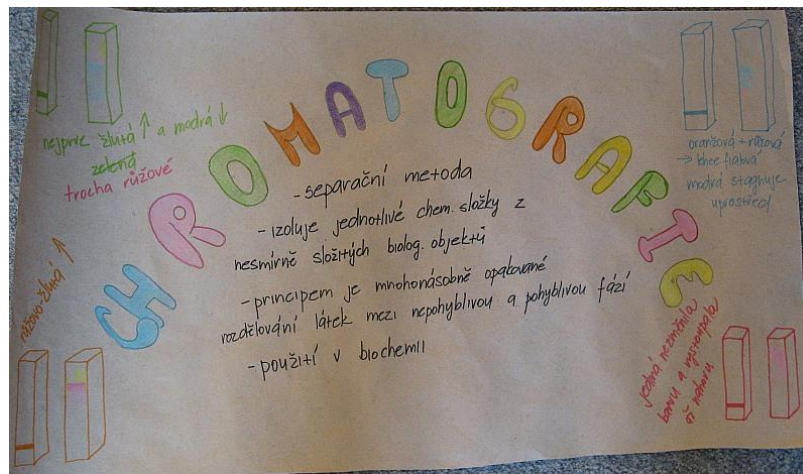 CHROMATOGRAFIE
nejprve žlutá ↑ a modrá ↓
zelená
trocha růžové
oranžová + růžová
modrá stagnuje
uprostřed
- separační metoda
- izoluje jednotlivé chem. složky z
nesmírně složitých biolog. objektů
- principem je mnohonásobně opakované
rozdělování látek mezi nepohyblivou a pohyblivou fází
- použití v biochemii
růžovo-žlutá ↑
jediná nezměnila
barvu a vystoupala
až nahoru